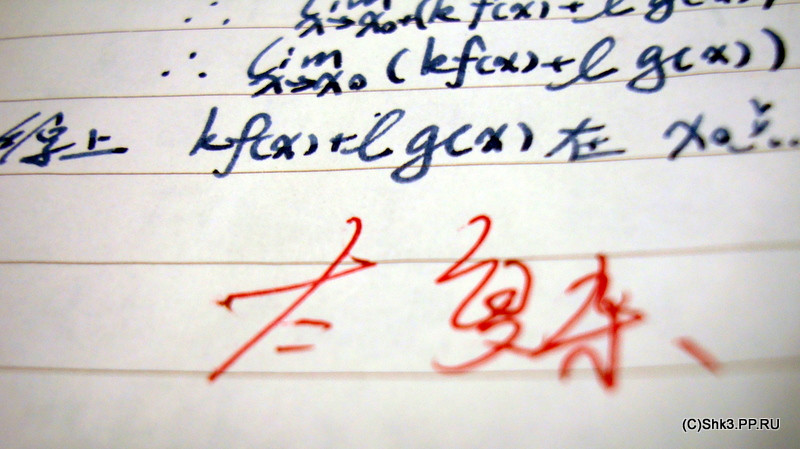 ∴ lim x→x₀+ (kf(x)+l g(x)
∴ lim x→x₀ (kf(x)+l g(x))
综上 kf(x)+l g(x) 在 x₀
太复杂、
(C)Shk3.PP.RU